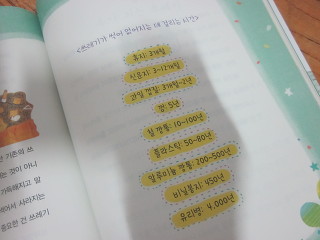 <쓰레기가 썩어 없어지는 데 걸리는 시간>
휴지: 3개월
신문지: 3-12개월
과일 껍질: 3개월-2년
껌: 5년
철 깡통: 10-100년
플라스틱: 50-80년
알루미늄 깡통: 200-500년
비닐봉지: 450년
유리병: 4,000년
기존의 쓰
는 것이 아니
가득해지고 말
썩어서 사라지는
중요한 건 쓰레기